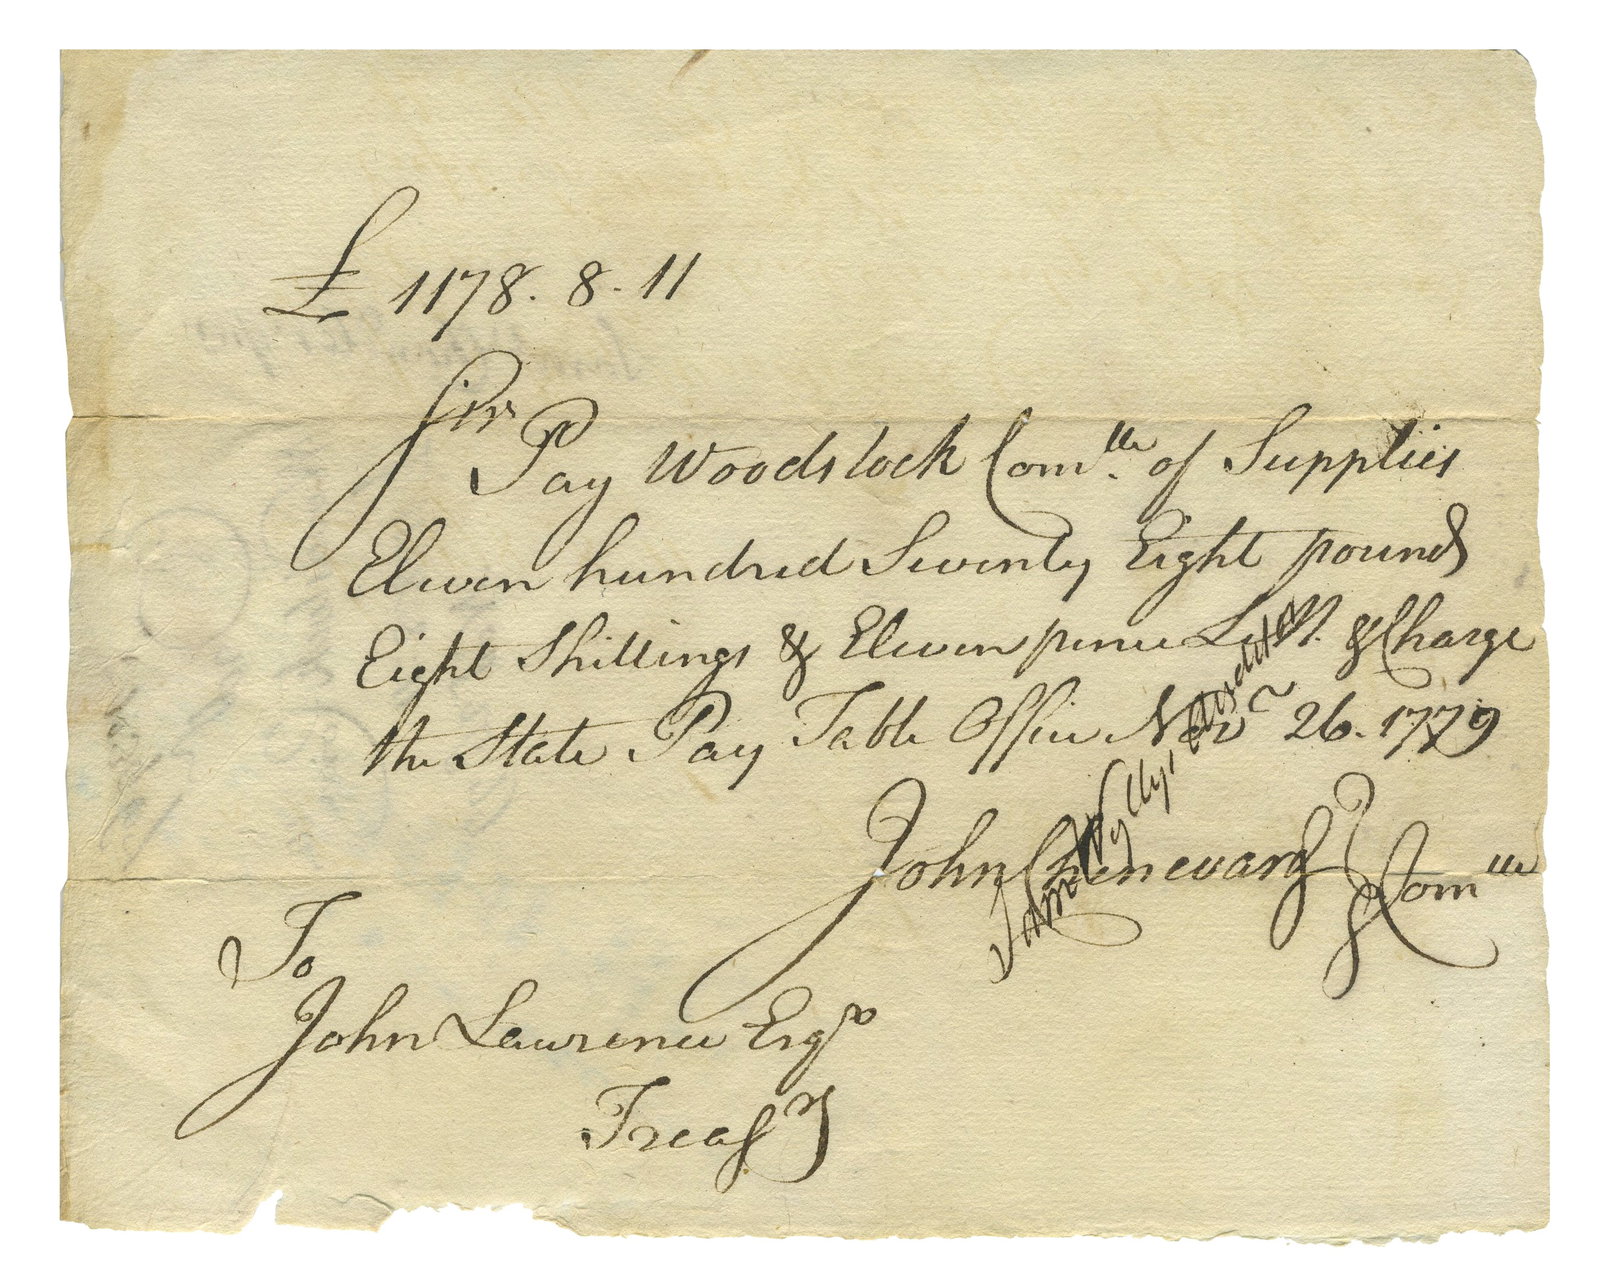 £ 1178. 8. 11
Sir
Pay Woodstock Com.ttee of Supplies
Eleven hundred Seventy Eight pounds
Eight Shillings & Eleven pence L. M. & Charge
the State Pay Table Office Novr 26. 1779
John Chenevard Comttee
Sam Wyllys, Auditor
To
John Lawrence Esqr
Treasr